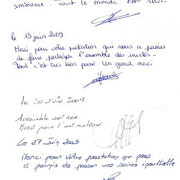 ambiance. tout le monde est ravi.
Le 13 juin 2009
Merci pour votre prestation qui nous a permis
de faire participer l'ensemble des invités.
Tout s'est bien passé. Un grand merci.
Le 20 Juin 2009
Agréable soirée
Merci pour l'animateur.
Le 27 juin 2009
Merci pour votre prestation qui nous
a permis de passer une soirée inoubliable